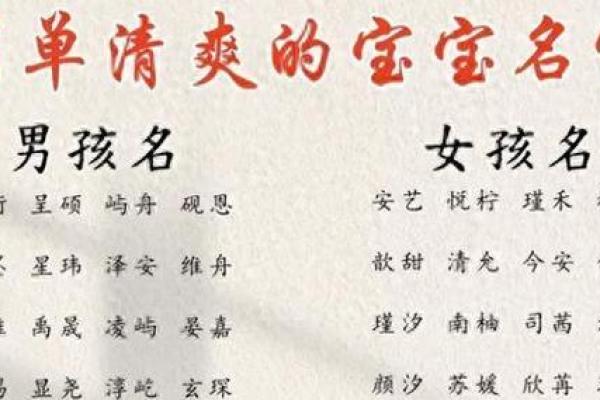 单清爽的宝宝名
男孩名
女孩名
呈硕 屿舟 砚恩
安艺 悦柠 瑾禾
星玮 泽安 维舟
歆甜 清允 今安
禹晟 凌屿 晏嘉
瑾汐 南柚 司茜
显尧 淳屹 玄琛
颜汐 苏媛 欣苒